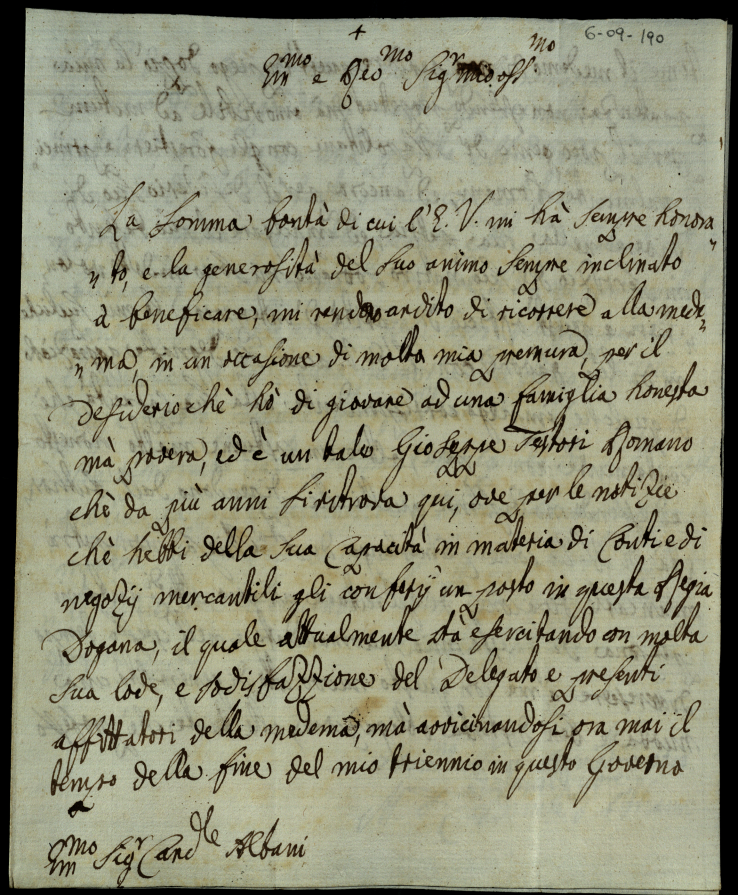 6-09-190
+
Em^mo e Reo^mo Sig^r mio oss^mo
La somma bontà di cui l'E. V. mi hà sempre honora„
„to, e la generosità del suo animo sempre inclinato
à beneficare, mi rendono ardito di ricorrere alla mede„
„ma, in un occasione di molta mia premura, per il
desiderio chè hò di giovare ad una famiglia honesta
mà povera, ed è un tale Gioseppe Testori Romano
chè da più anni si ritrova qui, ove per le notizie
chè hebbi della sua capacità in materia di Conti e di
negozij mercantili gli conferij un posto in questa Regia
Dogana, il quale attualmente stà esercitando con molta
sua lode, e sodisfazzione del Delegato e presenti
affittatori della medema, mà avvicinandosi ora mai il
tempo della fine del mio triennio in questo Governo
Em^mo Sig^r Card^le Albani